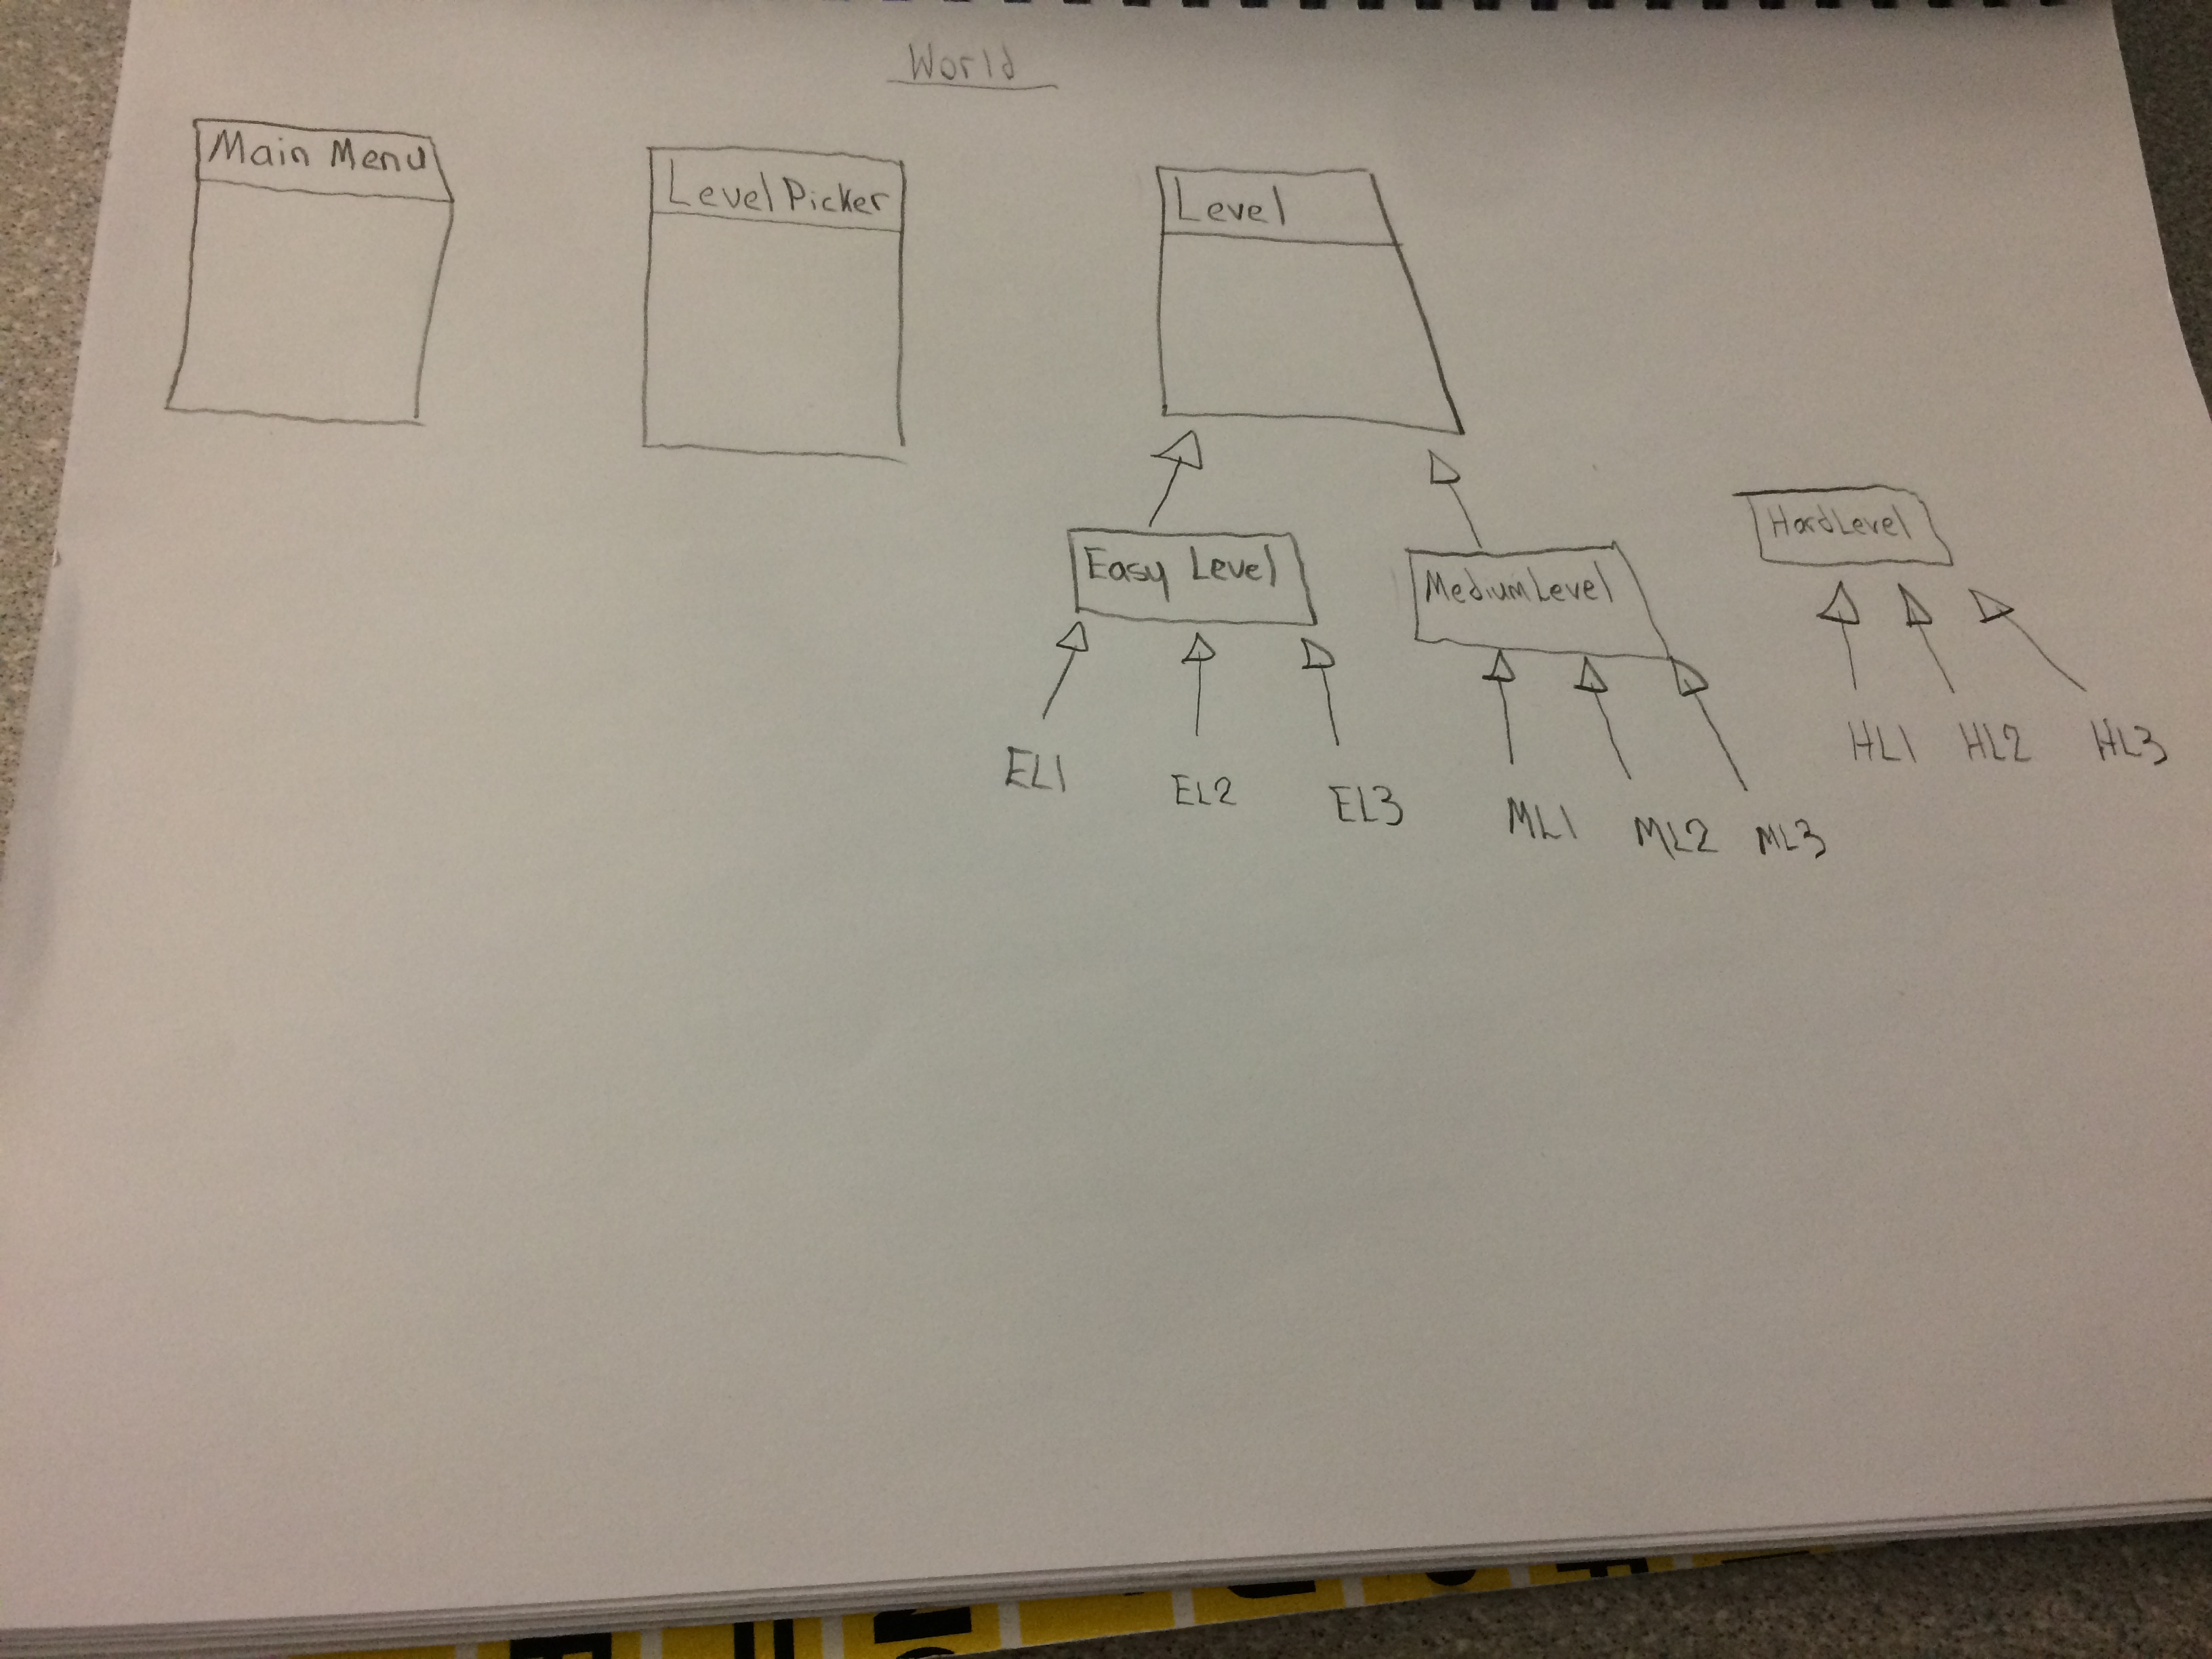 World
Main Menu
LevelPicker
Level
Easy Level
MediumLevel
HardLevel
EL1
EL2
EL3
ML1
ML2
ML3
HL1
HL2
HL3